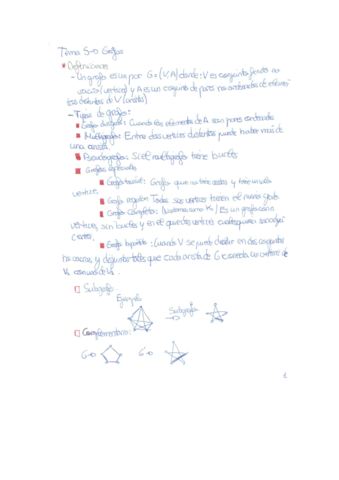 Tema 5-0 Grafos
Definiciones
- Un grafo es un par G=(V,A) donde: V es conjunto finito no
vacío (vertices) y A es un conjunto de pares no ordenados de
distintos de V (aristas)
- Tipos de grafos:
Grafos dirigidos: Cuando los elementos de A son pares ordenados
Multigrafos: Entre dos vertices distintos puede haber más de
una arista.
Pseudografos: Si el multigrafo tiene bucles
Grafos especiales
Grafo trivial: Grafo que no tiene aristas y tiene un solo
vertice.
Grafo regular: Todos sus vertices tienen el mismo grado
Grafo completo: Es un grafo con n
vertices, sin bucles y en el que dos vertices cualesquiera son
Grafo bipartito: Cuando V se puede dividir en dos conjuntos
no vacios y disjuntos tales que cada arista de G conecta un vertice de
V₁ con uno de V₂.
Subgrafo:
Ejemplo Subgrafo
Complementario:
G→ G→
1